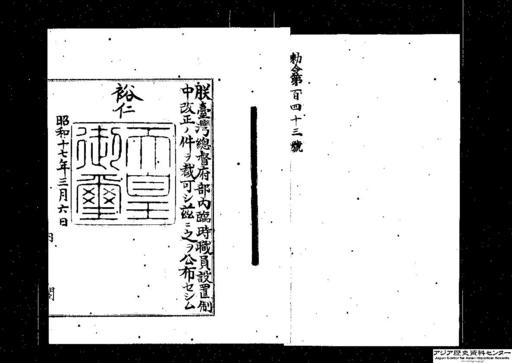 勅令第百四十三號
朕臺灣總督府部内臨時職員設置制
中改正ノ件ヲ裁可シ茲ニ之ヲ公布セシム
裕仁
天皇
御璽
昭和十七年三月六日
内
閣
アジア歴史資料センター
Japan Center for Asian Historical Records